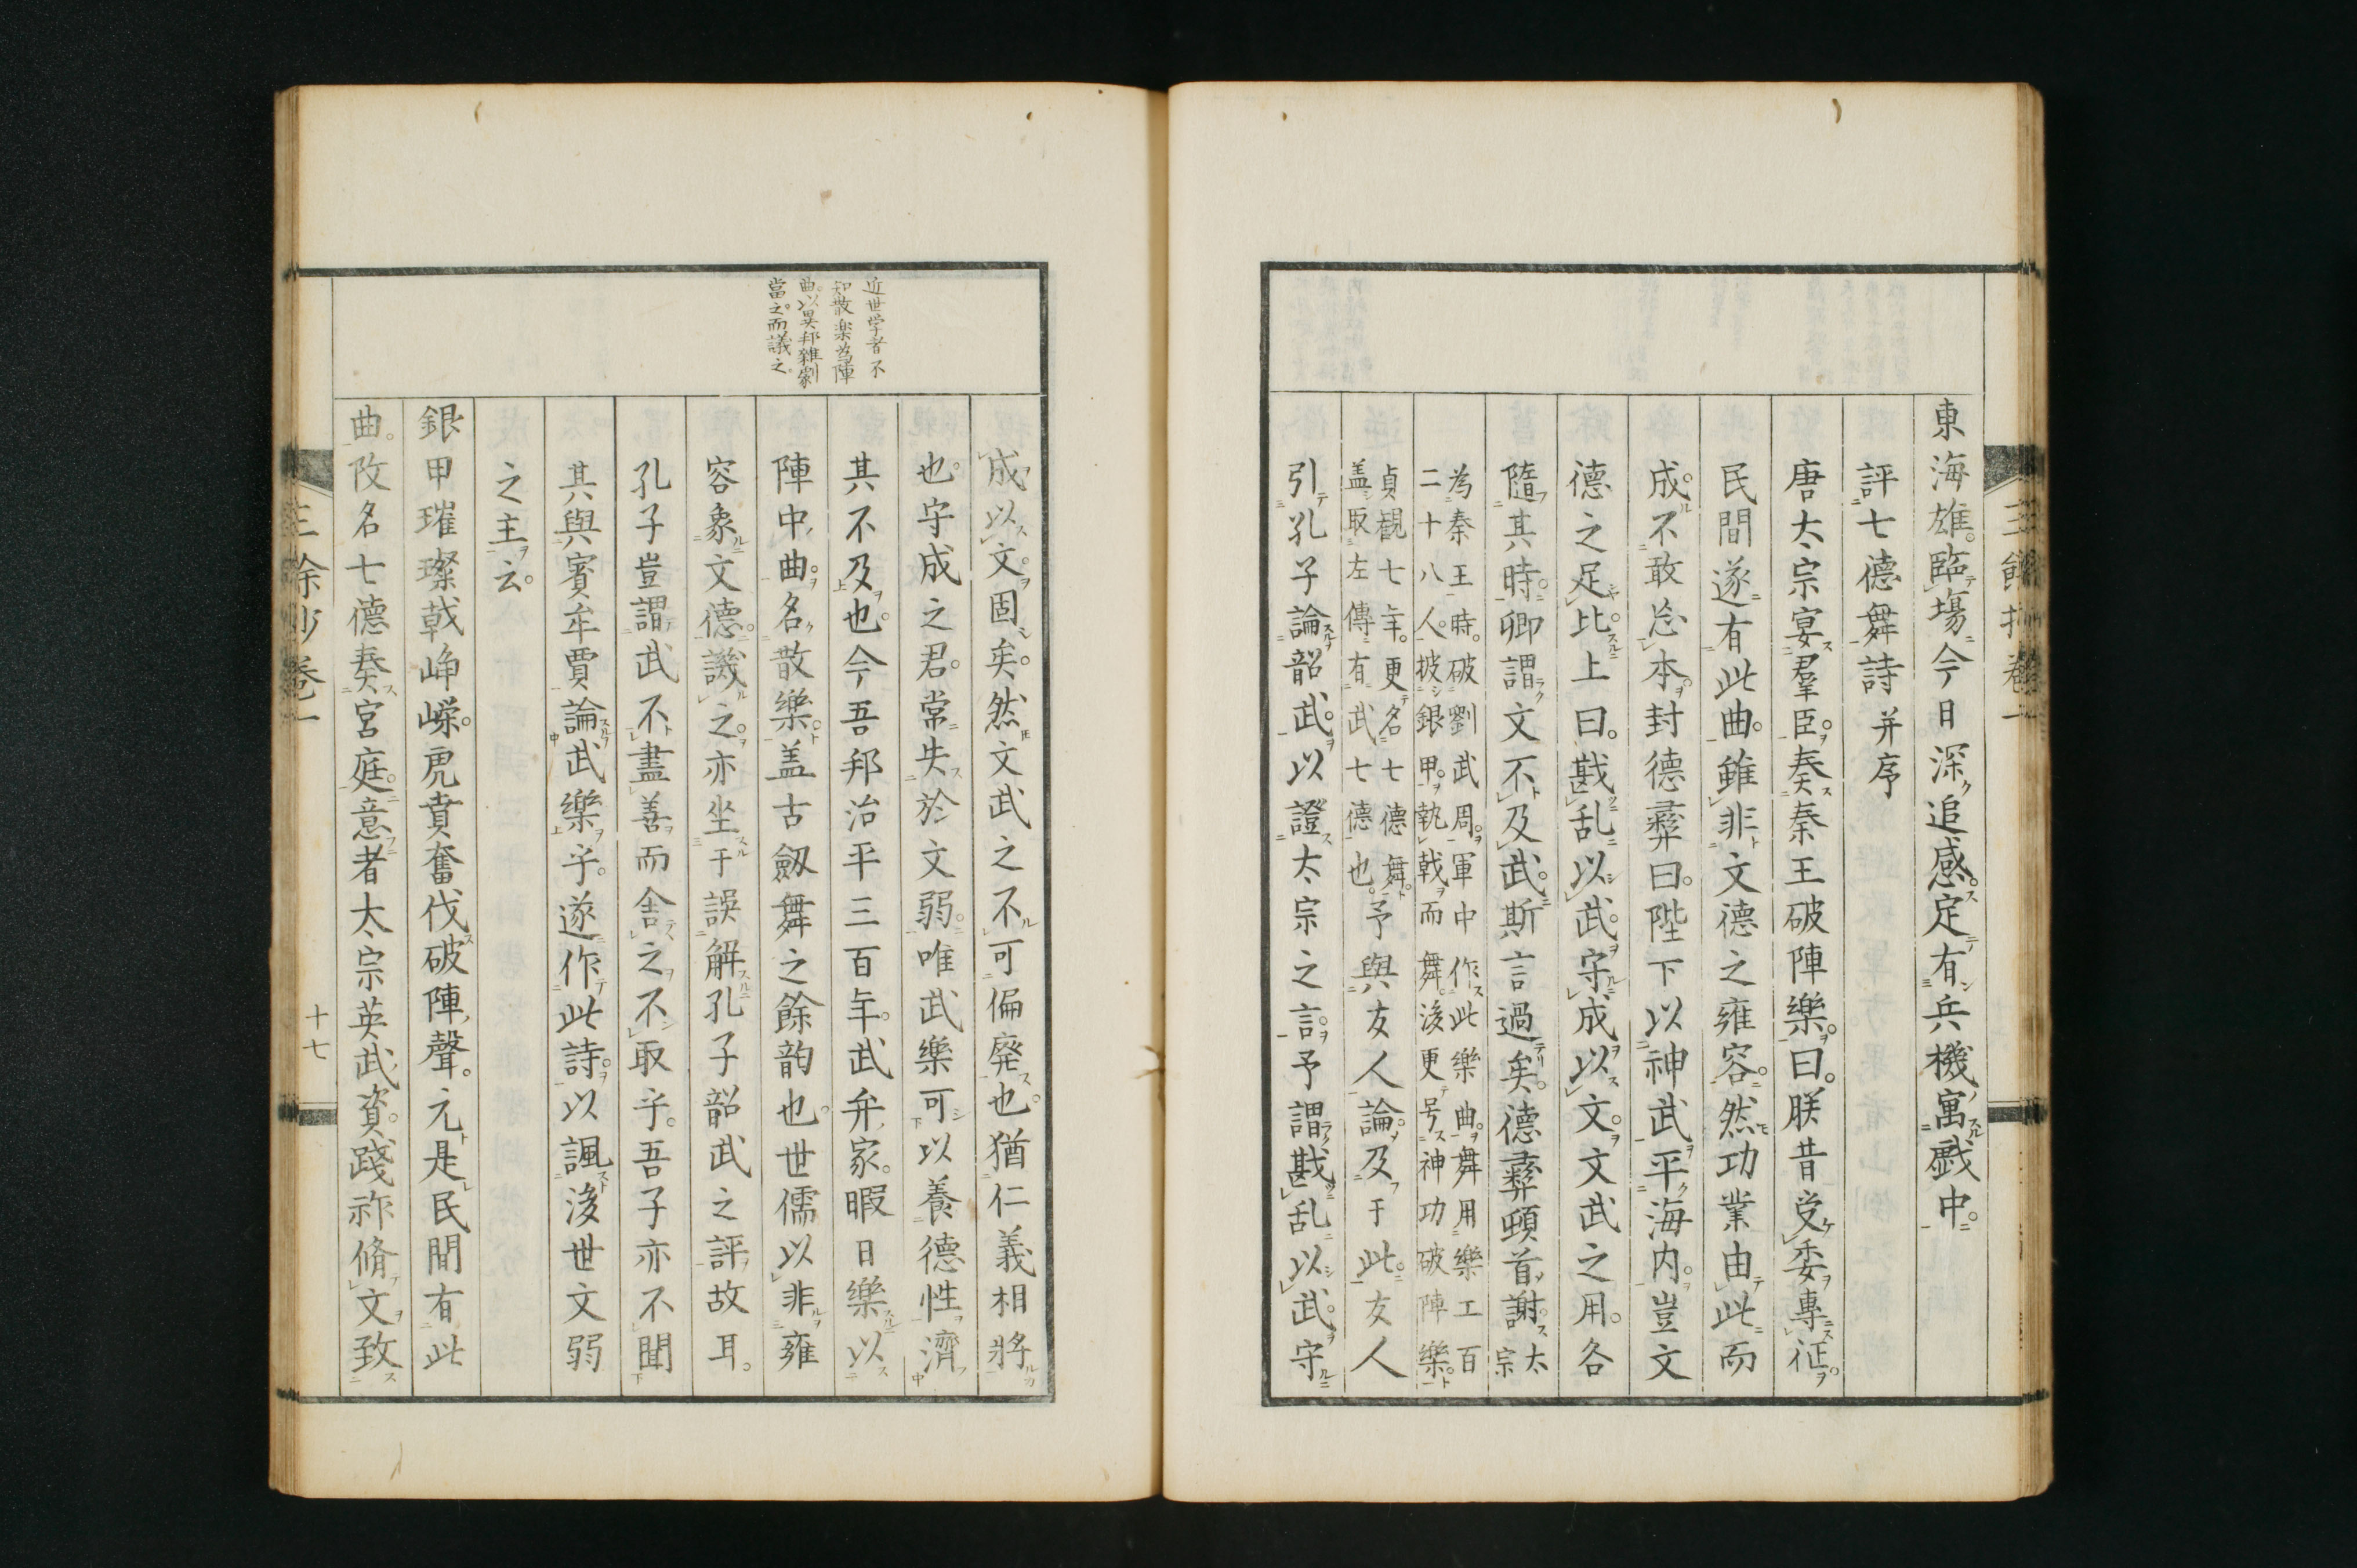 東海雄。臨場今日深追感。定有兵機寓戱中。
評七德舞詩并序
唐太宗宴羣臣。奏秦王破陣樂。曰。朕昔受委專征。
民間遂有此曲。雖非文德之雍容。然功業由此而
成。不敢忘本。封德彝曰。陛下以神武平海内。豈文
德之足比。上曰。戡乱以武。守成以文。文武之用。各
隨其時。卿謂文不及武。斯言過矣。德彝頓首謝。太宗
為秦王時。破劉武周。軍中作此樂曲。舞用樂工百
二十八人。披銀甲。執戟而舞。後更号神功破陣樂。
貞觀七年。更名七德舞。
盖取左傳有武七德也。予與友人論及于此。友人
引孔子論韶武。以證太宗之言。予謂戡乱以武。守
成以文。固矣。然文武之不可偏廢也。猶仁義相將
也。守成之君。常失於文弱。唯武樂可以養德性濟
其不及也。今吾邦治平三百年。武弁家。暇日樂以
陣中曲。名散樂。盖古劔舞之餘韵也。世儒以非雍
容象文德。譏之。亦坐于誤解孔子韶武之評故耳。
孔子豈謂武不盡善而舍之不取乎。吾子亦不聞
其與賓牟賈論武樂乎。遂作此詩。以諷後世文弱
之主云。
銀甲璀璨戟崢嶸。虎賁奮伐破陣聲。元是民間有此
曲。改名七德奏宮庭。意者太宗英武資。踐祚脩文致
近世学者不
知散楽為陣
曲。以異邦雜劇
當之。而議之。
三餘抄卷一
十七